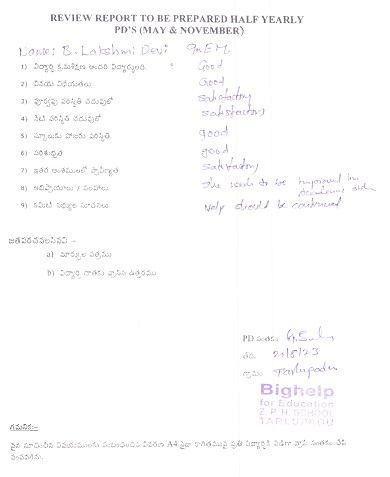 REVIEW REPORT TO BE PREPARED HALF YEARLY
PD'S (MAY & NOVEMBER)
Name: B. Lakshmi Devi 9th EM
1) విద్యార్థి క్రమశిక్షణ Good
2) వినయ విధేయతలు Good
3) పూర్వపు పరిస్థితి చదువులో Satisfactory
4) నేటి పరిస్థితి చదువులో Satisfactory
5) స్కూలుకు హాజరు పరిస్థితి. good
6) పరిశుభ్రత good
7) ఇతర అంశములలో ప్రావీణ్యత Satisfactory
8) అభిప్రాయాలు / She needs to be improved in Academic side
9) కమిటి సభ్యుల సూచనలు Help should be continued
జతపరచవలసినవి :-
a) మార్కుల పత్రము
b) విద్యార్థి దాతకు వ్రాసిన ఉత్తరము
PD సంతకం
తేది. 21/8/23
గ్రామం Tarlupadu
Bighelp
for Education
Z.P.H. SCHOOL
TARLUPADU
గమనిక:-
పైన సూచించిన విషయములకు సంబంధించిన వివరణ A4 సైజు కాగితముపై ప్రతి విద్యార్థికి విడిగా వ్రాసి సంతకం చేసి
పంపవలెను.